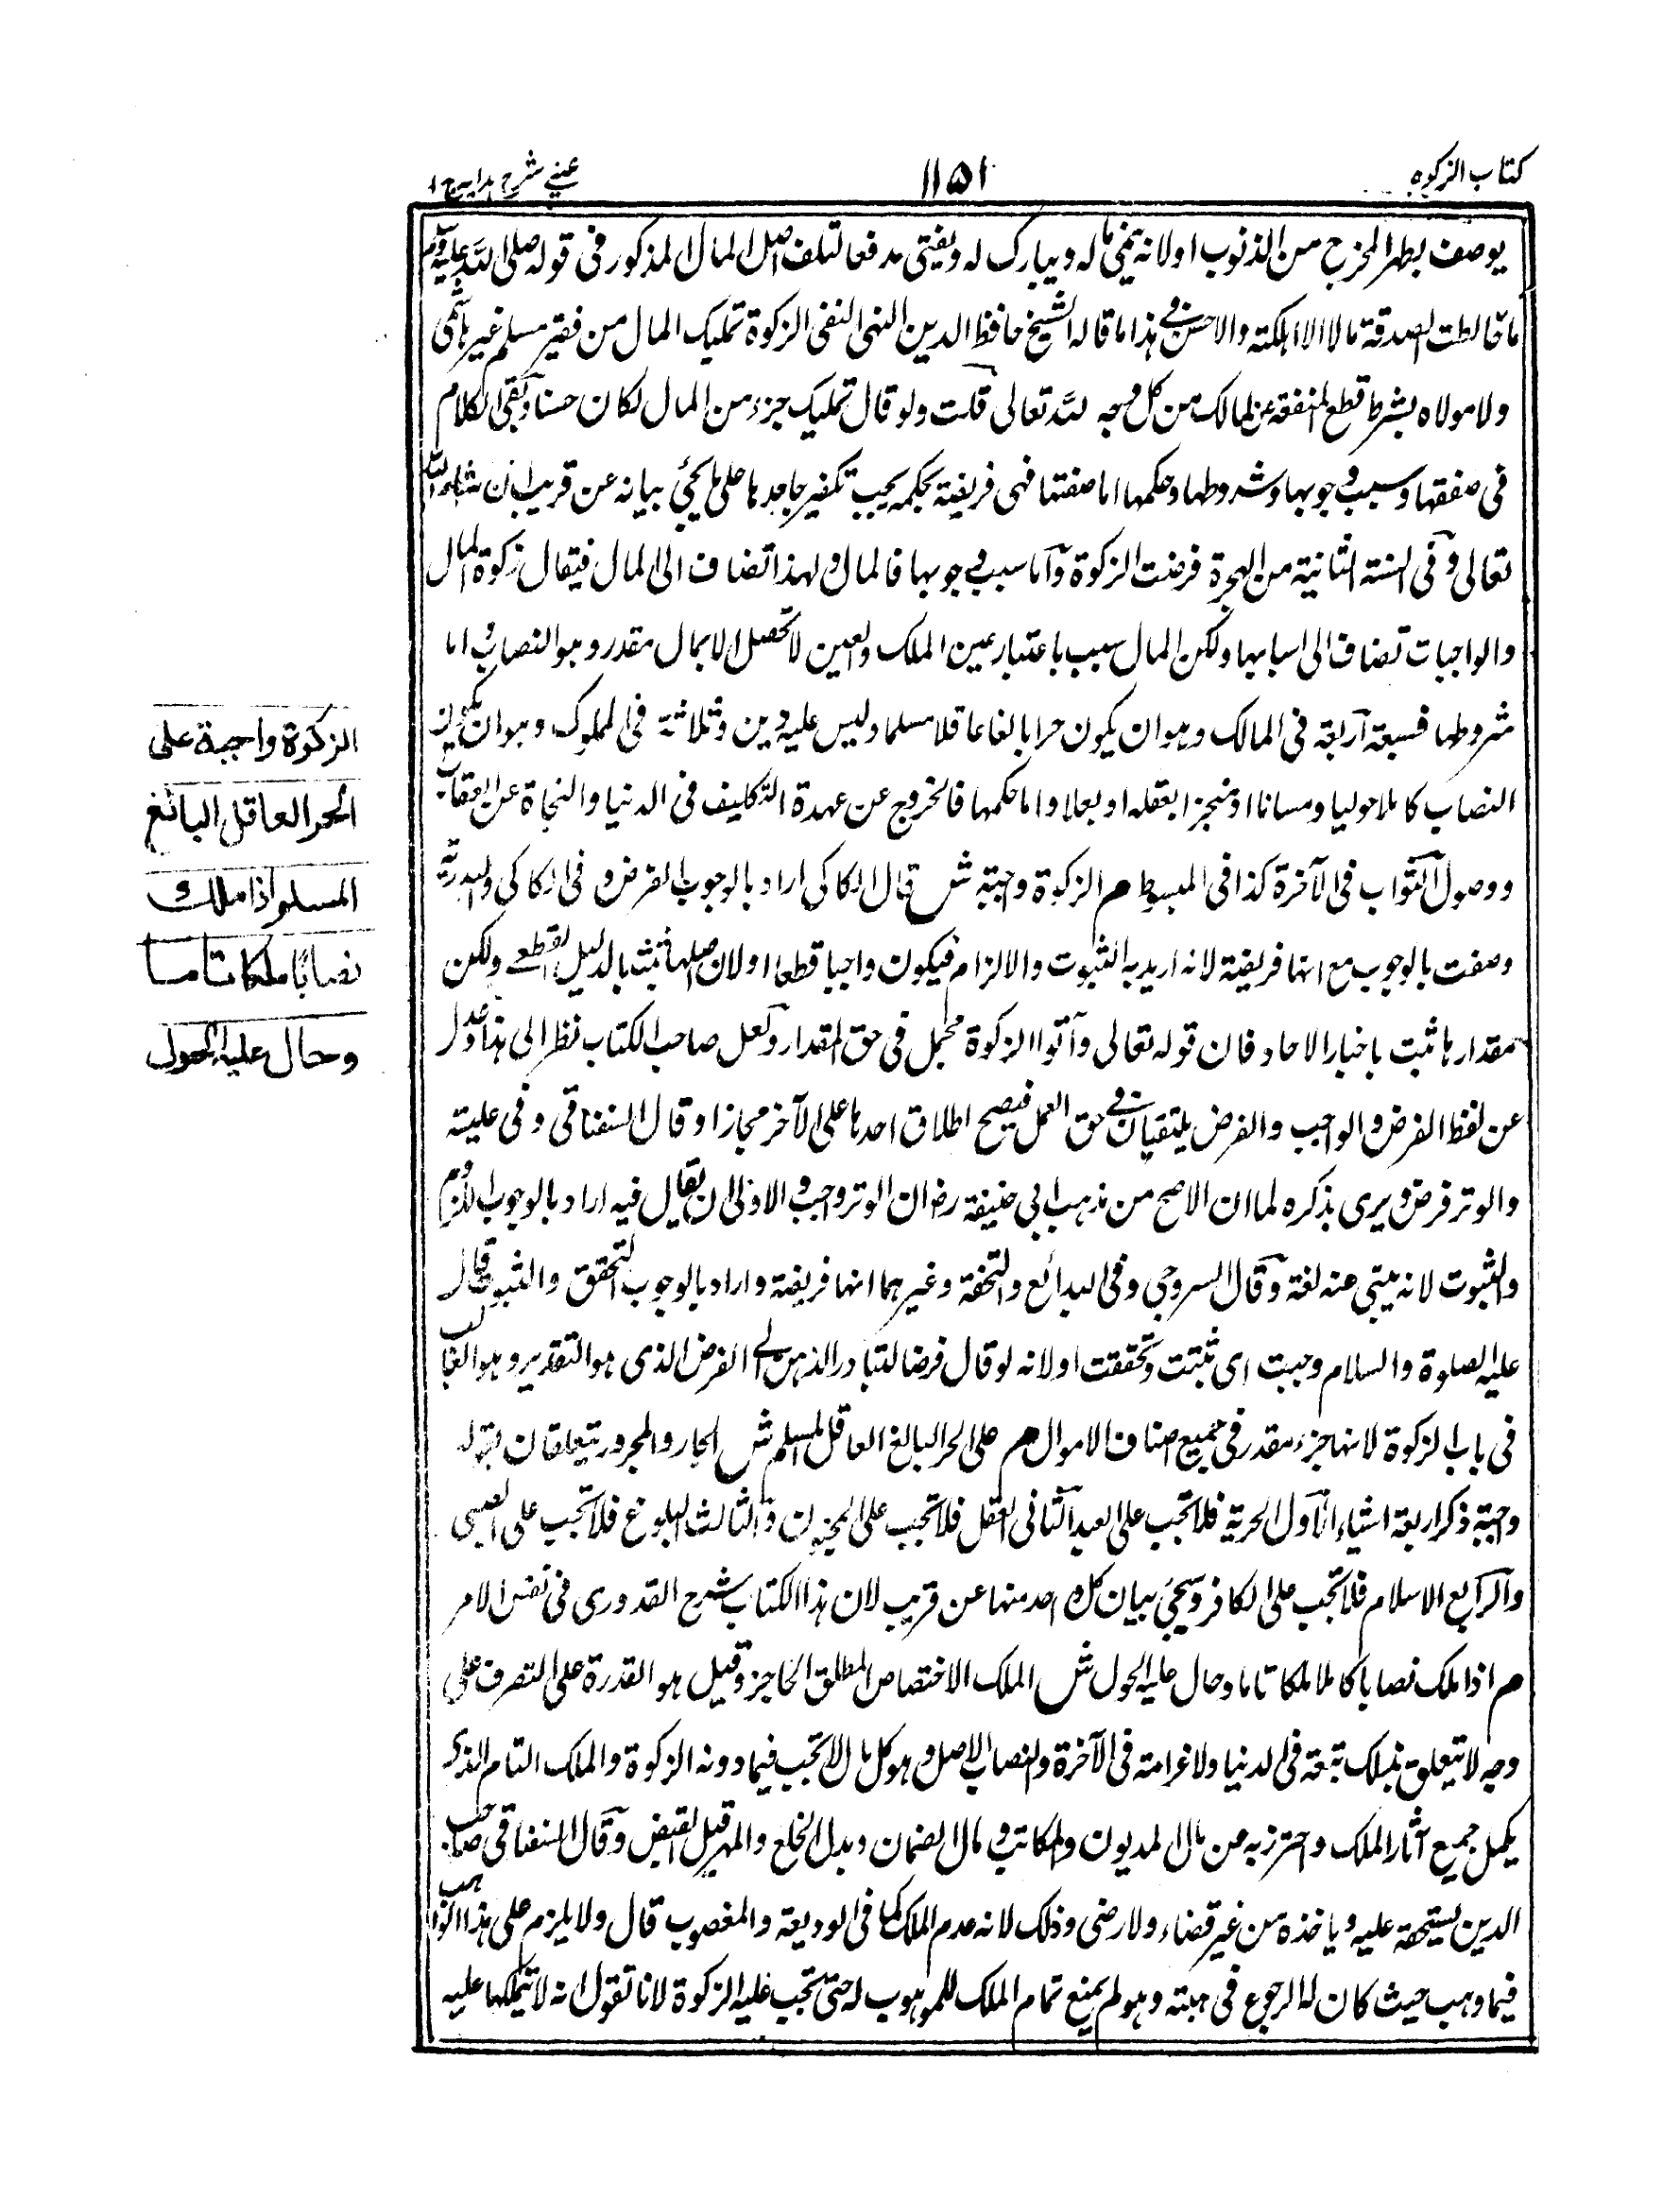 كتاب الزكوة
١١٥١
عينى شرح هدايه ج ١
يوصف بطهر المخرج من الذنوب او لانه ينمى ماله ويبارك له ويفتى مدفعا لتلف اصل المال المذكور فى قوله صلى الله عليه وسلم
ما خالطت الصدقة مالا الا اهلكته والاحسن فى هذا ما قاله الشيخ حافظ الدين النسفى الزكوة تمليك المال من فقير مسلم غير هاشمى
ولا مولاه بشرط قطع المنفعة عن المالك من كل وجه لله تعالى قلت ولو قال تمليك جزء من المال لكان حسنا وبقى الكلام
فى صفقها وسبب وجوبها وشروطها وحكمها اما صفتها فهى فريضة محكمة يجب تكفير جاحدها على ما يجئ بيانه عن قريب ان شاء الله
تعالى وفى السنة الثانية من الهجرة فرضت الزكوة وآما سبب وجوبها فالمال ولهذا تضاف الى المال فيقال زكوة المال
والواجبات تضاف الى اسبابها ولكن المال سبب باعتبار عين الملك والعين لا تحصل الا بمال مقدر وهو النصاب واما
شروطها فسبعة آربعة فى المالك وهو ان يكون حرا بالغا عاقلا مسلما وليس عليه دين وثلاثة فى المملوك وهو ان يكون
النصاب كاملا حوليا ومسانا او منجزا بعقله او بعلا واما حكمها فالخروج عن عهدة التكليف فى الدنيا والنجاة عن العقاب
ووصول الثواب فى الآخرة كذا فى المبسوط م الزكوة واجبة ش قال الكاكى اراد بالوجوب الفرض وفى الكاكى والبدرية
وصفت بالوجوب مع انها فريضة لانه اريد به الثبوت والالزام فيكون واجبا قطعا او لان اصلها ثبت بالدليل القطعے ولكن
مقدارها ثبت باخبار الاحاد فان قوله تعالى وآتوا الزكوة مجمل فى حق المقدار ولعل صاحب الكتاب نظر الى هذا وعدل
عن لفظ الفرض والواجب والفرض يلتقيان فى حق العمل فيصح اطلاق احدهما على الآخر مجازا وقال السغناقى وفى عليته
والوتر فرض ويرى بذكره لما ان الاصح من مذهب ابى حنيفة رض ان الوتر واجب والاولى ان يقال فيه اراد بالوجوب اللزوم
والثبوت لانه يبتى عنه لغة وقال السروجى وفى البدائع والتحفة وغيرهما انها فريضة واراد بالوجوب التحقق والثبوت قال
عليه الصلوة والسلام وجبت اى ثبتت وتحققت او لانه لو قال فرضا لتبادر الذهن الى الفرض الذى هو التقدير وهو الغالب
فى باب الزكوة لانها جزء مقدر فى جميع اصناف الاموال م على الحر البالغ العاقل المسلم ش الجار والمجرور يتعلقان بقوله
واجبة ذكر اربعة اشياء الآول الحرية فلا تجب على العبد الثانى العقل فلا تجب على المجنون والثالث البلوغ فلا تجب على الصبى
والرابع الاسلام فلا تجب على الكافر وسيجئ بيان كل واحد منها عن قريب لان هذا الكتاب شرح القدورى فى نفس الامر
م اذا ملك نصابا كاملا ملكا تاما وحال عليه الحول ش الملك الاختصاص المطلق الحاجز وقيل هو القدرة على التصرف على
وجه لا يتعلق بملك تبعة فى الدنيا ولا غرامة فى الآخرة والنصاب الاصل وهو كل مال لا تجب فيما دونه الزكوة والملك التام الذى
يكمل جميع آثار الملك واحترز به من مال المديون والمكاتب ومال الضمان وبدل الخلع والمهر قبل القبض وقال السغناقى صاحب
الدين يستحقه عليه وياخذه من غير قضاء ولا رضى وذلك لانه عدم الملك كما فى الوديعة والمغصوب قال ولا يلزم على هذا الواهب
فيما وهب حيث كان له الرجوع فى هبته وهو لم يمنع تمام الملك للموهوب له حتى تجب عليه الزكوة لانا تقول انه لا يتملكها عليه
الزكوة واجبة على
الحر العاقل البالغ
المسلم اذا ملك
نصابًا ملكا تاما
وحال عليه الحول